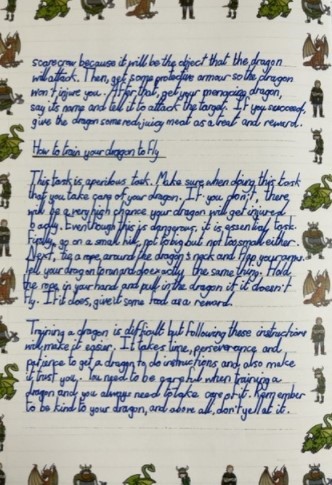 scarecrow because it will be the object that the dragon
will attack. Then, get some protective armour so the dragon
won't injure you. After that, get your menacing dragon,
say its name and tell it to attack the target. If you succeed,
give the dragon some red, juicy meat as a treat and reward.
How to train your dragon to Fly
This task is a perilous task. Make sure when doing this task
that you take care of your dragon. If you don't, there
will be a very high chance your dragon will get injured
Even though this is dangerous, it is essential task.
Firstly, go on a small hill, not too big but not too small either.
Next, tie a rope around the dragon's neck and flap your arms.
Tell your dragon to the same thing. Hold
the rope in your hand and pull in the dragon if it doesn't
fly. If it does, give it some food as a reward.
Training a dragon is difficult but following these instructions
will make it easier. It takes time, perseverance and
patience to get a dragon to do instructions and also make
it trust you. You need to be careful when training a
dragon and you always need to take care of it. Remember
to be kind to your dragon, and above all, don't yell at it.